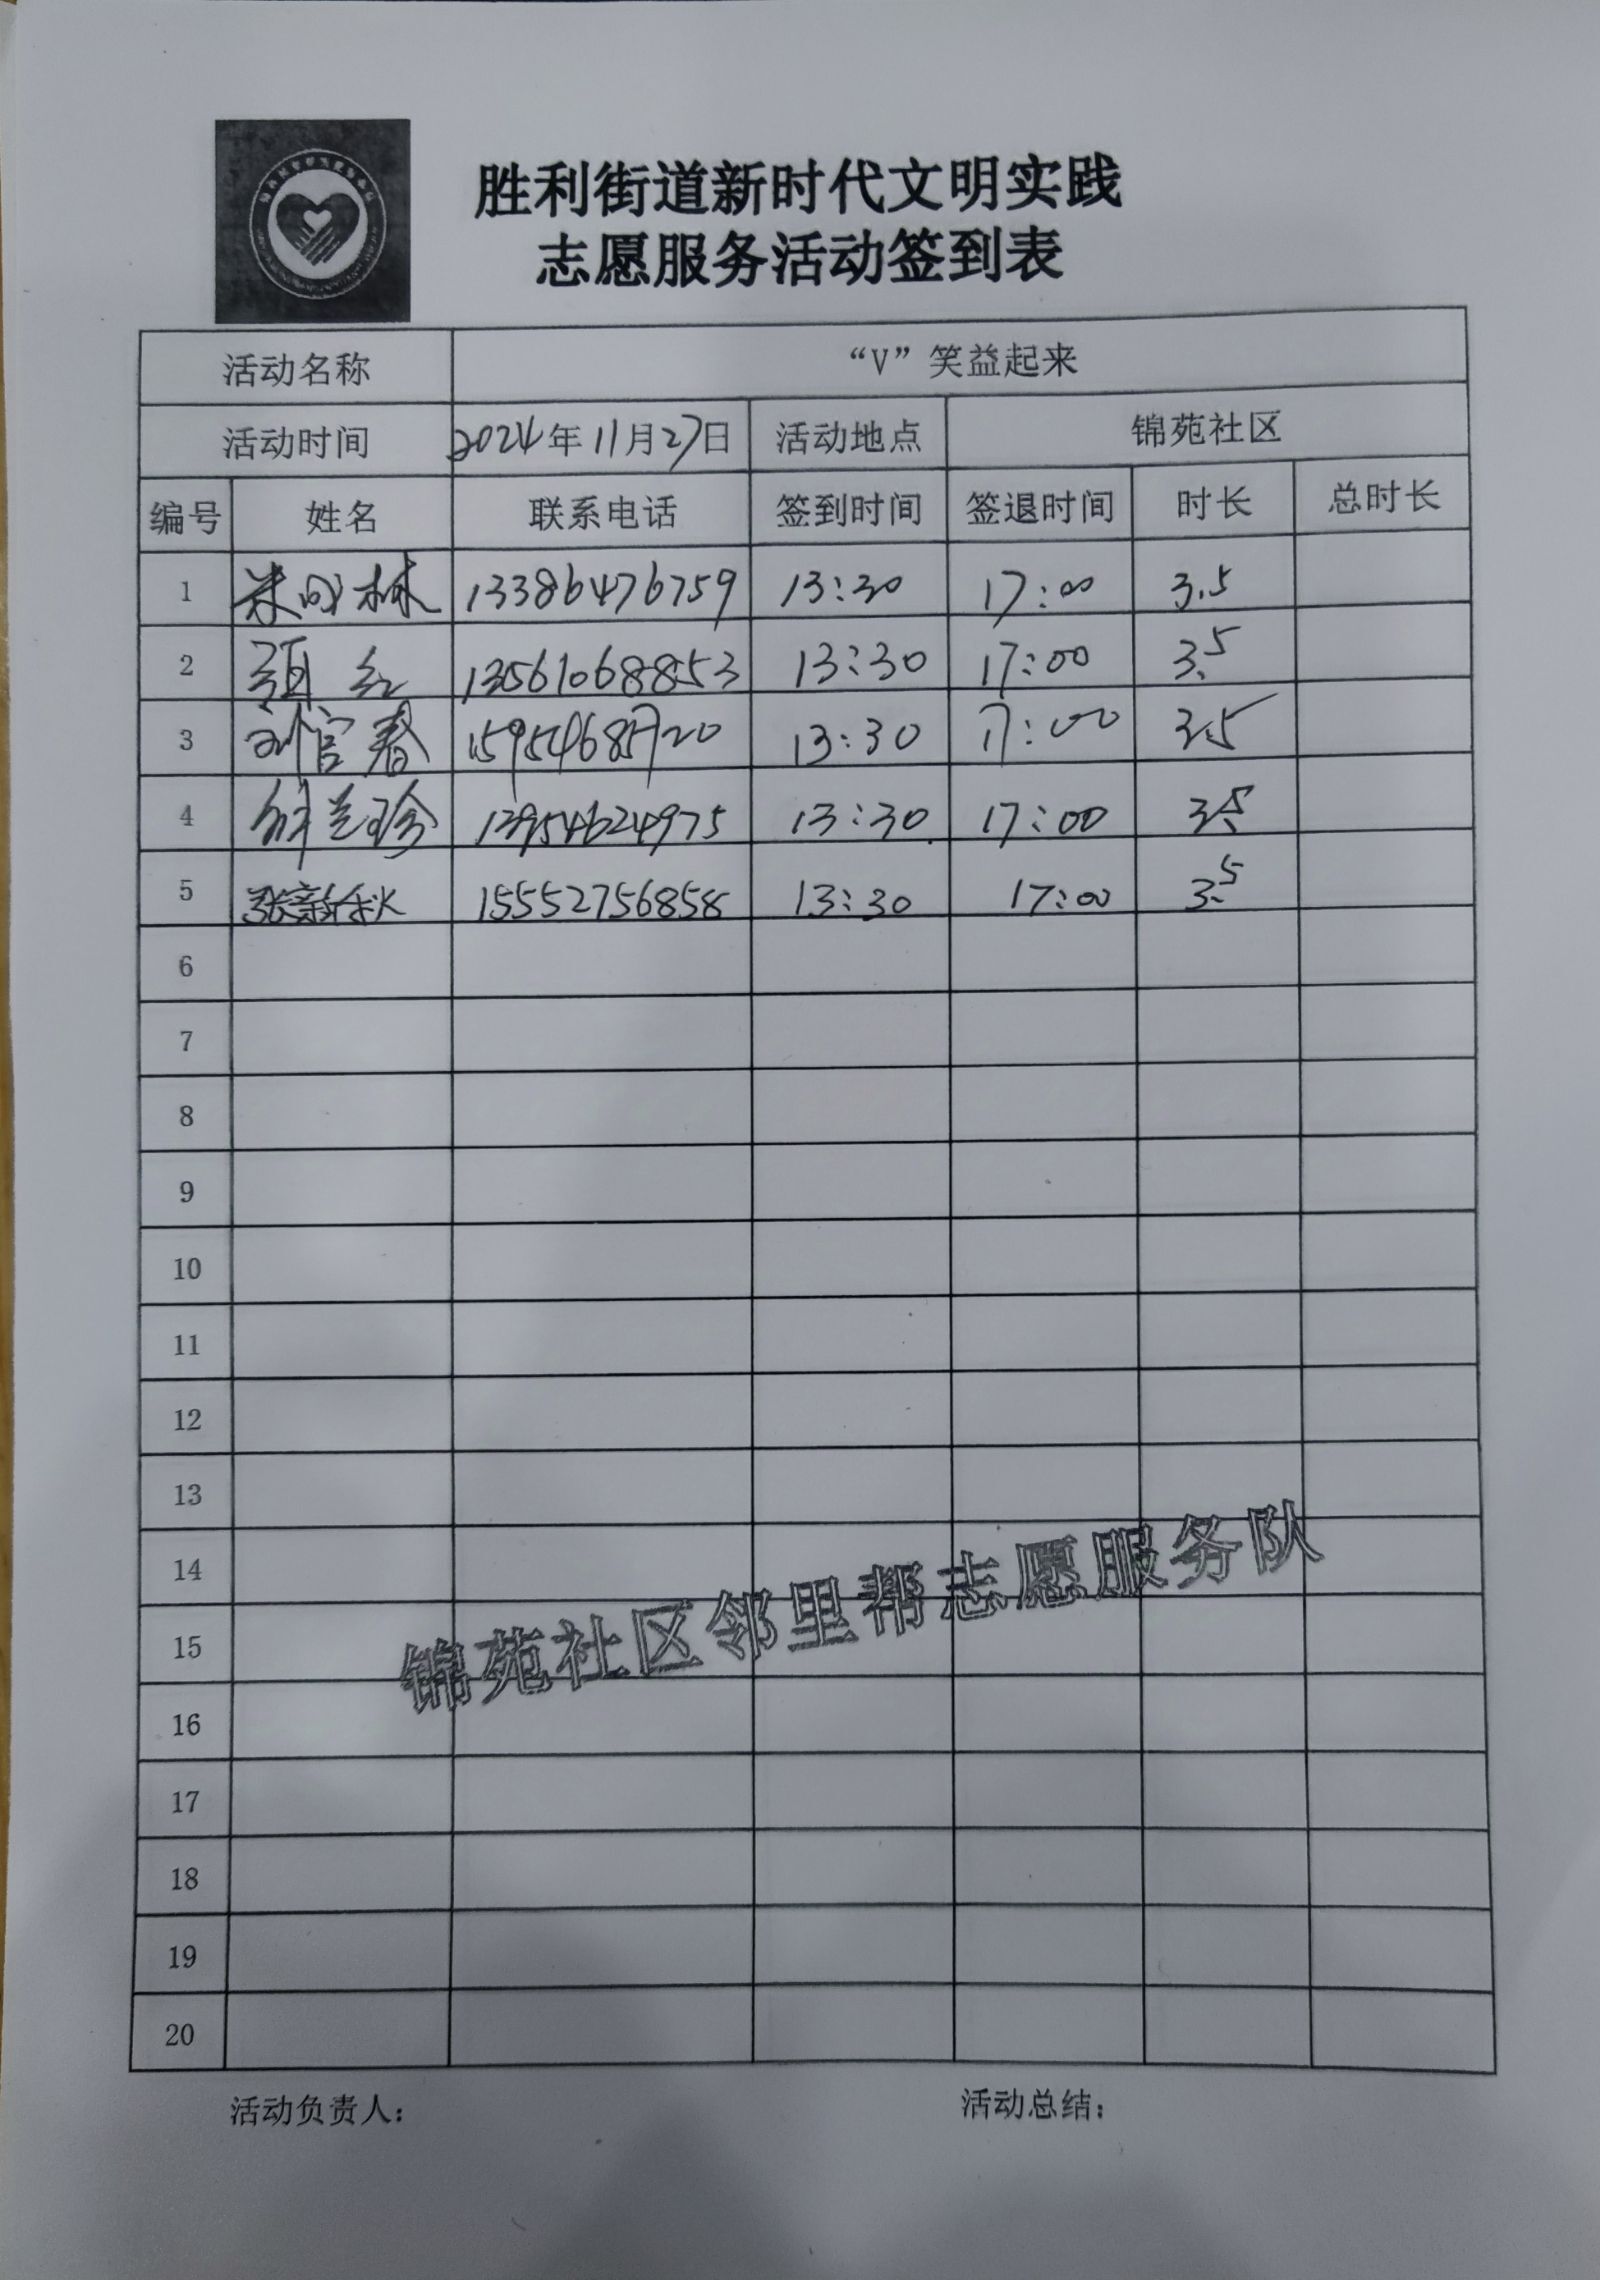 胜利街道新时代文明实践
志愿服务活动签到表
活动名称 “V”笑益起来
活动时间 2024年11月27日 活动地点 锦苑社区
编号 姓名 联系电话 签到时间 签退时间 时长 总时长
1 13386476759 13:30 17:00 3.5
2 13561068853 13:30 17:00 3.5
3 刘官春 13:30 17:00 3.5
4 13954624975 13:30 17:00 3.5
5 张新秋 15552756858 13:30 17:00 3.5
6
7
8
9
10
11
12
13
14
15
锦苑社区邻里帮志愿服务队
16
17
18
19
20
活动负责人： 活动总结：